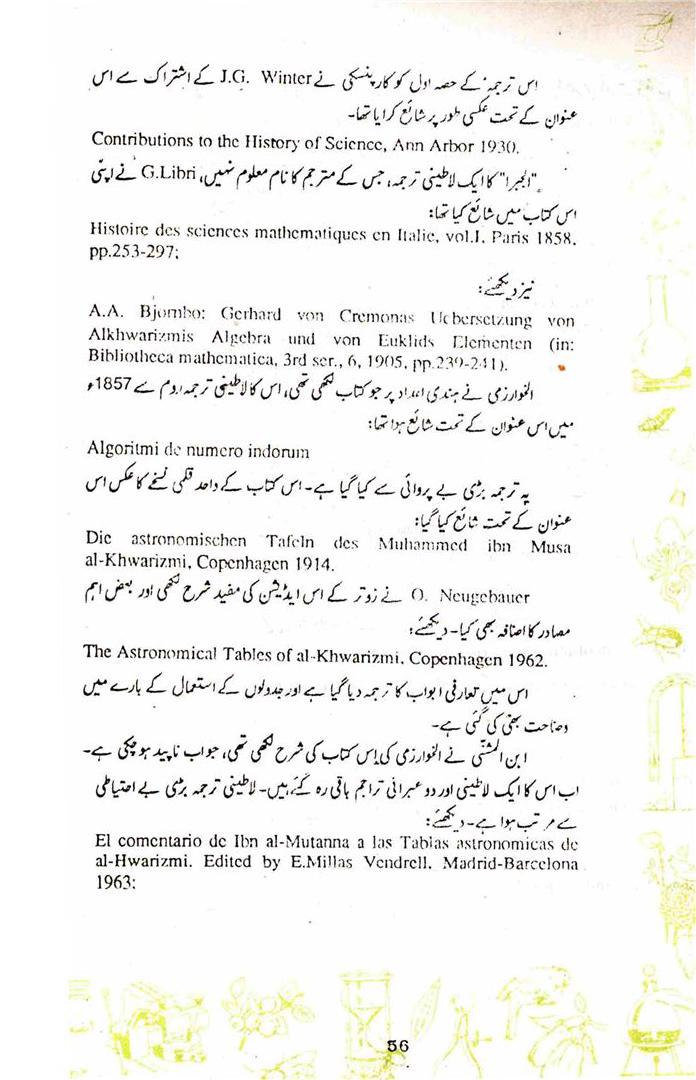 اس ترجمہ کے حصہ اول کو کارپنسکی نے J.G. Winter کے اشتراک سے اس
عنوان کے تحت عکسی طور پر شائع کرایا تھا۔
Contributions to the History of Science, Ann Arbor 1930.
"الجبرا" کا ایک لاطینی ترجمہ، جس کے مترجم کا نام معلوم نہیں، G.Libri نے اپنی
اس کتاب میں شائع کیا تھا:
Histoire des sciences mathematiques en Italie, vol.I. Paris 1858.
pp.253-297;
نیز دیکھئے:
A.A. Bjornbo: Gerhard von Cremonas Uebersetzung von
Alkhwarizmis Algebra und von Euklids Elementen (in:
Bibliotheca mathematica, 3rd ser., 6, 1905, pp.239-241).
الخوارزمی نے ہندی اعداد پر جو کتاب لکھی تھی، اس کا لاطینی ترجمہ روم سے 1857ء
میں اس عنوان کے تحت شائع ہوا تھا:
Algoritmi de numero indorum
یہ ترجمہ بڑی بے پروائی سے کیا گیا ہے۔ اس کتاب کے واحد قلمی نسخے کا عکس اس
عنوان کے تحت شائع کیا گیا:
Die astronomischen Tafeln des Muhammed ibn Musa
al-Khwarizmi, Copenhagen 1914.
O. Neugebauer نے زوتر کے اس ایڈیشن کی مفید شرح لکھی اور بعض اہم
مصادر کا اضافہ بھی کیا۔ دیکھئے:
The Astronomical Tables of al-Khwarizmi, Copenhagen 1962.
اس میں تعارفی ابواب کا ترجمہ دیا گیا ہے اور جدولوں کے استعمال کے بارے میں
وضاحت بھی کی گئی ہے۔
ابن المثنّٰی نے الخوارزمی کی اس کتاب کی شرح لکھی تھی، جو اب ناپید ہو چکی ہے۔
اب اس کا ایک لاطینی اور دو عبرانی تراجم باقی رہ گئے ہیں۔ لاطینی ترجمہ بڑی بے احتیاطی
سے مرتب ہوا ہے۔ دیکھئے:
El comentario de Ibn al-Mutanna a las Tablas astronomicas de
al-Hwarizmi. Edited by E.Millas Vendrell, Madrid-Barcelona
1963:
56